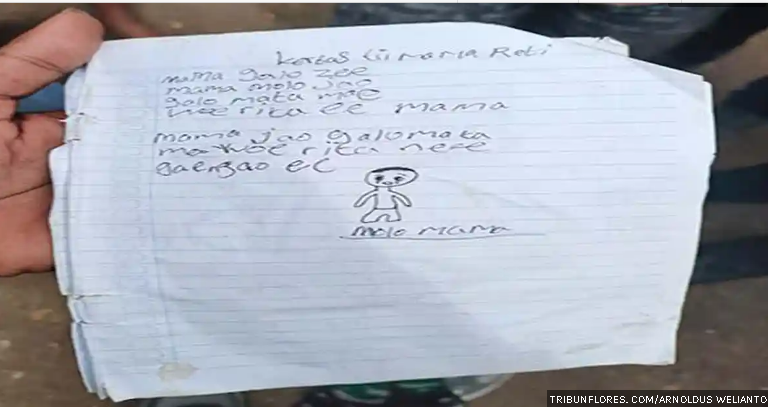 Kertas Tii mama Reti
mama galo zee
mama molo Ja'o
galo mata mae
woe rita ee mama
mama jao galo mata
mae woe rita ne'e
gae ngao ee
molo mama
TRIBUNFLORES.COM/ARNOLDUS WELIANTO